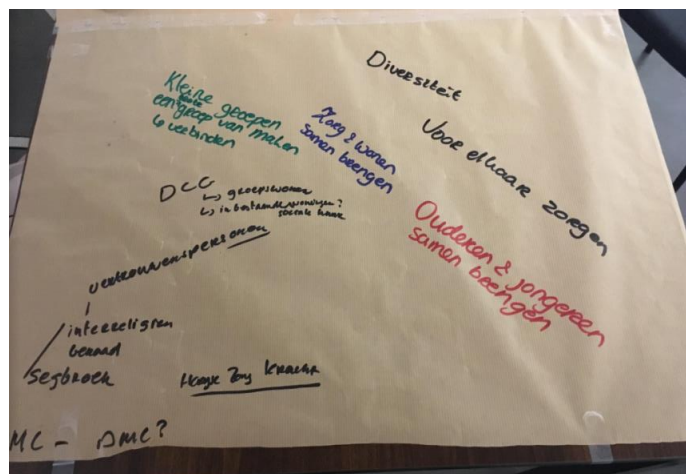 Diversiteit
Kleine groepen
grote
een groep van maken
↳ verbinden
Zorg & wonen
samen brengen
Voor elkaar zorgen
DCG
↳ groepswonen
↳ in bestaande woningen?
sociale huur
Ouderen & jongeren
samen brengen
vertrouwenspersonen
interreligieu
beraad
Segbroek
Haagse Zorg Kracht
MC - DMC?